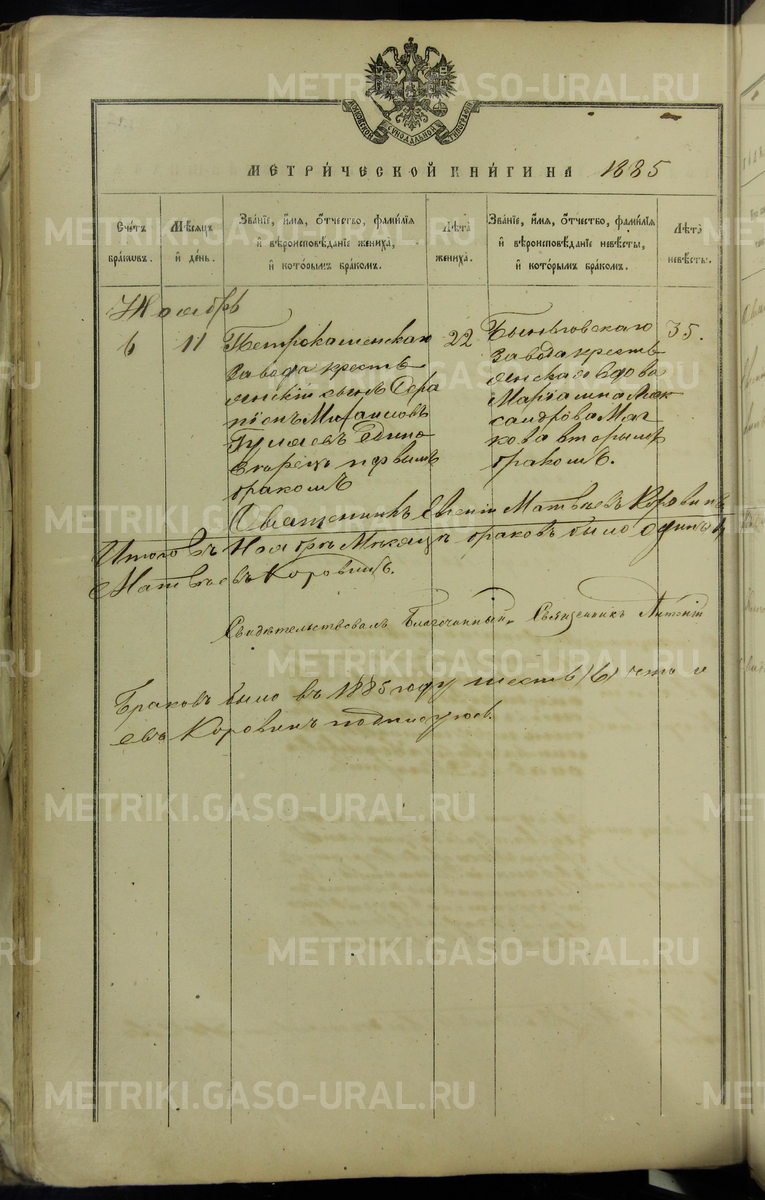 МЕТРИЧЕСКОЙ КНИГИ НА 1885
Счетъ браковъ.
Мѣсяцъ и день.
Званіе, имя, отчество, фамилія и вѣроисповѣданіе жениха, и которымъ бракомъ.
Лѣта жениха.
Званіе, имя, отчество, фамилія и вѣроисповѣданіе невѣсты, и которымъ бракомъ.
Лѣта невѣсты.
Ноябрь
6 11
Петрокаменскаго
завода кресть
янскій сынъ Сера
піонъ Михаиловъ
Гуляевъ Едино
вѣрецъ первымъ
бракомъ
22
Быньговскаго
завода кресть
янская вдова
Маріамна Алек
сандрова Мяг
кова вторымъ
бракомъ.
35.
Священникъ Евгеній Матвѣевъ Коровинъ
Итого въ Ноябрѣ Мѣсяцѣ браковъ было одинъ
Матвѣевъ Коровинъ.
Свидѣтельствовалъ Благочинный, Священникъ Антоній
Браковъ было въ 1885 году шесть (6)
евъ Коровинъ подписуюсь.
METRIKI.GASO-URAL.RU